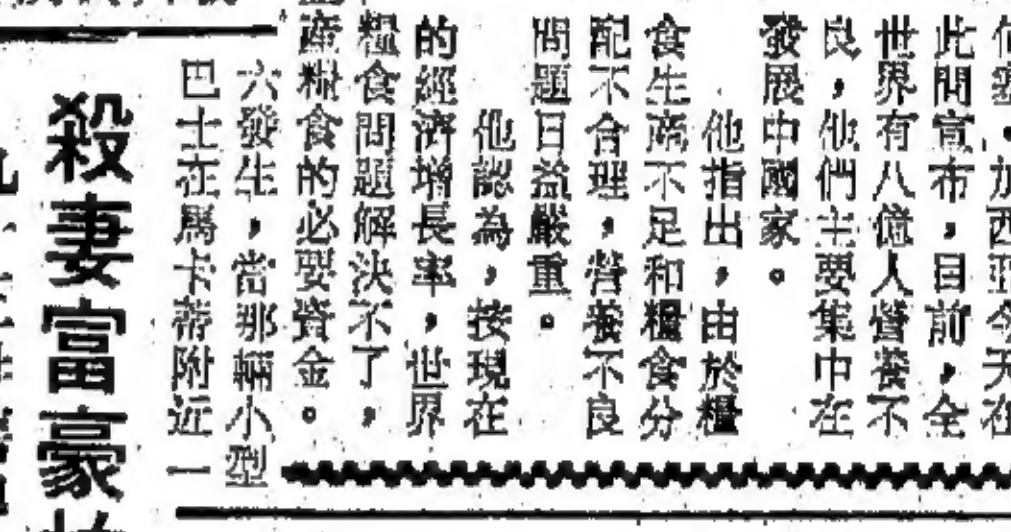 加西亞今天在
此間宣布，目前，全
世界有八億人營養不
良，他們主要集中在
發展中國家。
他指出，由於糧
食生產不足和糧食分
配不合理，營養不良
問題日益嚴重。
他認為，按現在
的經濟增長率，世界
糧食問題解決不了，
產糧食的必要資金。
六發生，當那輛小型
巴士在馬卡蒂附近一
殺妻富豪